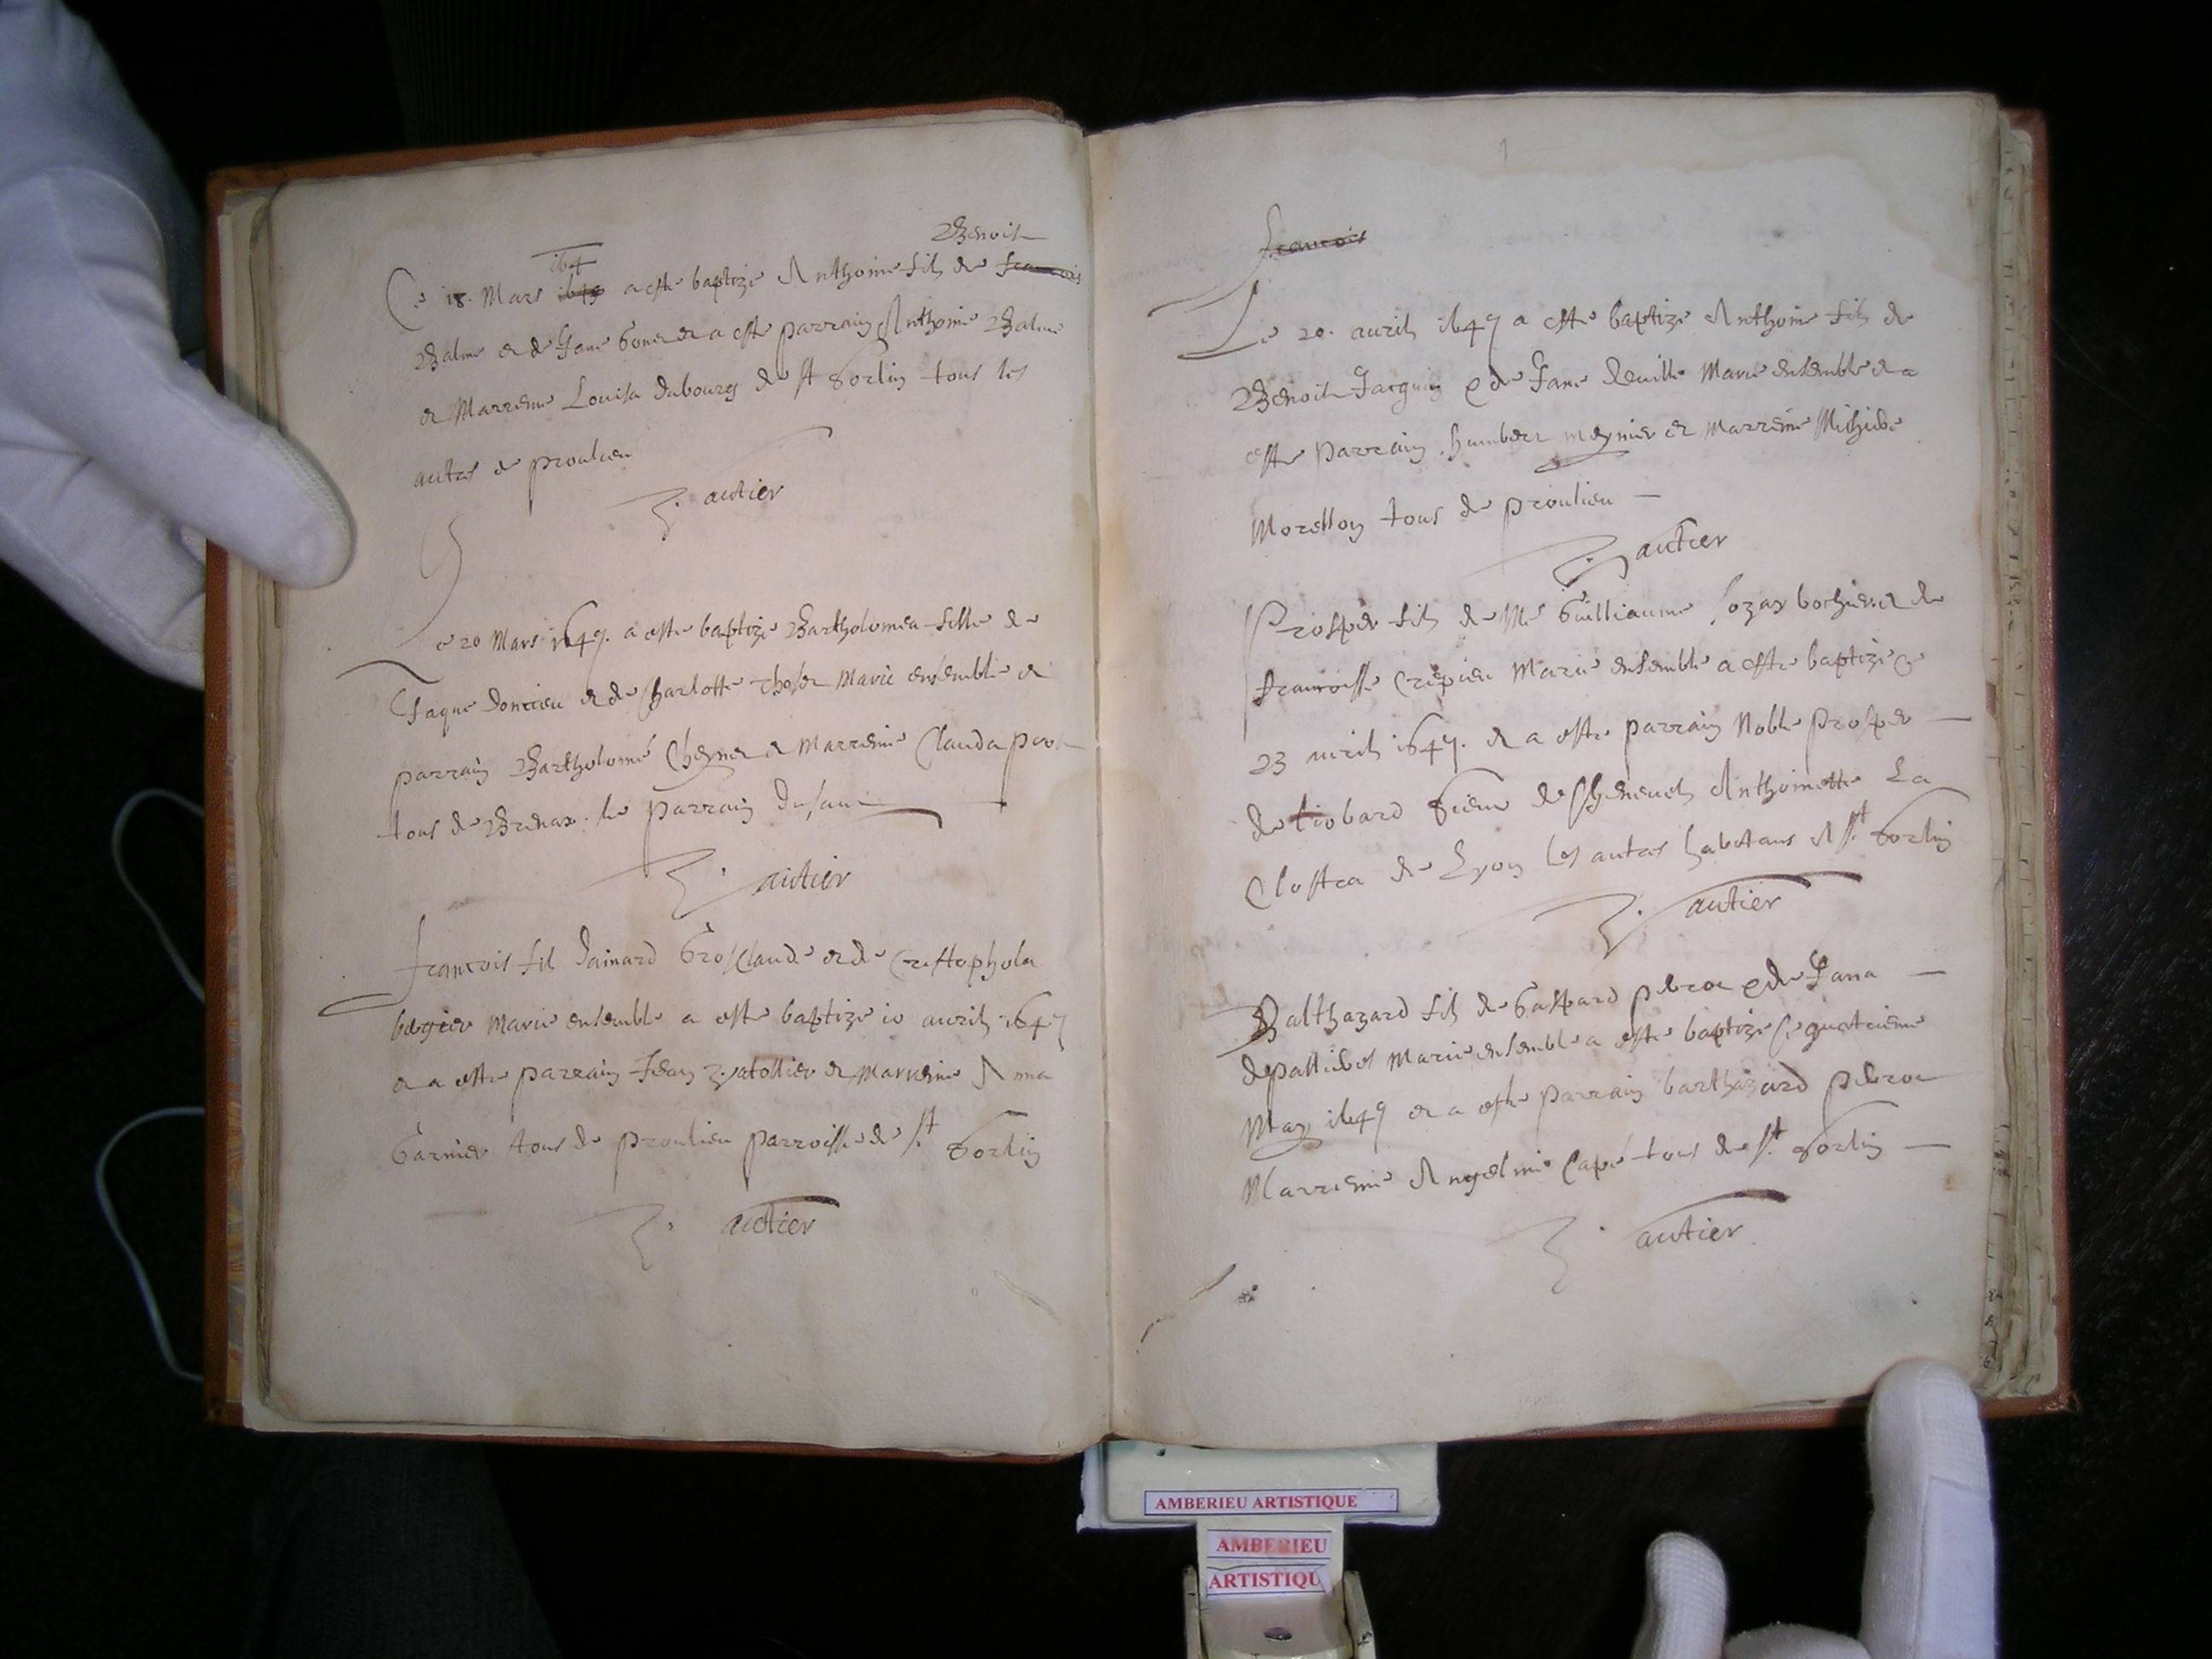 Benoit
Ce 18. Mars 164 1649 a este baptize Anthoine fils de francois
Balme et de Jane et a este parrain Anthoine Balme
et Marreine Louisa dubourg de st Sorlin tous les
autres de proulieu
autier
Ce 20 Mars 1647. a este baptize Bartholomea fille de
Jaque et de Charlotte Marie ensemble et
parrain Bartholomé Cheynet et Marreine Clauda
tous de Brenax. le parrain
autier
francois fil dainard Grosclaude et de Cristophola
bergier Marie ensemble a este baptize 10 auril 1647
et a este parrain Jean et Marreine Anna
Garnier tous de proulieu parroisse de st Sorlin
autier
francois
Le 20. auril 1647 a este baptize Anthoine fils de
Benoit Jacquin et de Jane deuille Marie ensemble et a
este parrain humbert meynier et marreine
Morellon tous de proulieu
autier
Prosper fils de Me Guilliaume et de
francoisse Crepieu Marie ensemble a este baptize ce
23 auril 1647. et a este parrain Noble prosper
de liobard Sieur de Anthoinette La
de Lyon les autres habitans A st. Sorlin
autier
Balthazard fils de Gaspard et de Jana
Marie ensemble a este baptize ce quatrieme
May 1647 et a este parrain barthazard
Marreine Angelmie Capé tous de st. Sorlin
autier
AMBERIEU ARTISTIQUE
AMBERIEU
ARTISTIQU